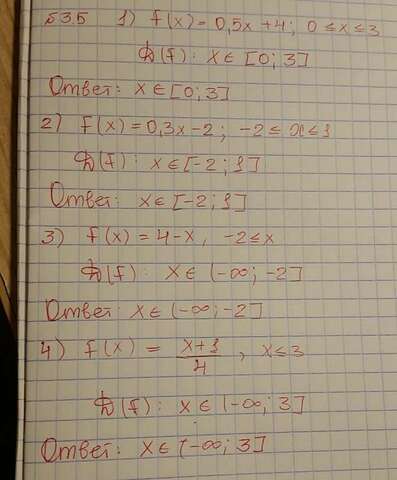 Б 3.5 1) f(x) = 0,5x + 4; 0 ≤ x ≤ 3
D(f): x ∈ [0; 3]
Ответ: x ∈ [0; 3]
2) f(x) = 0,3x - 2; -2 ≤ x ≤ 1
D(f): x ∈ [-2; 1]
Ответ: x ∈ [-2; 1]
3) f(x) = 4 - x, -2 ≤ x
D(f): x ∈ (-∞; -2]
Ответ: x ∈ (-∞; -2]
4) f(x) = (x+1)/4, x ≤ 3
D(f): x ∈ (-∞; 3]
Ответ: x ∈ (-∞; 3]